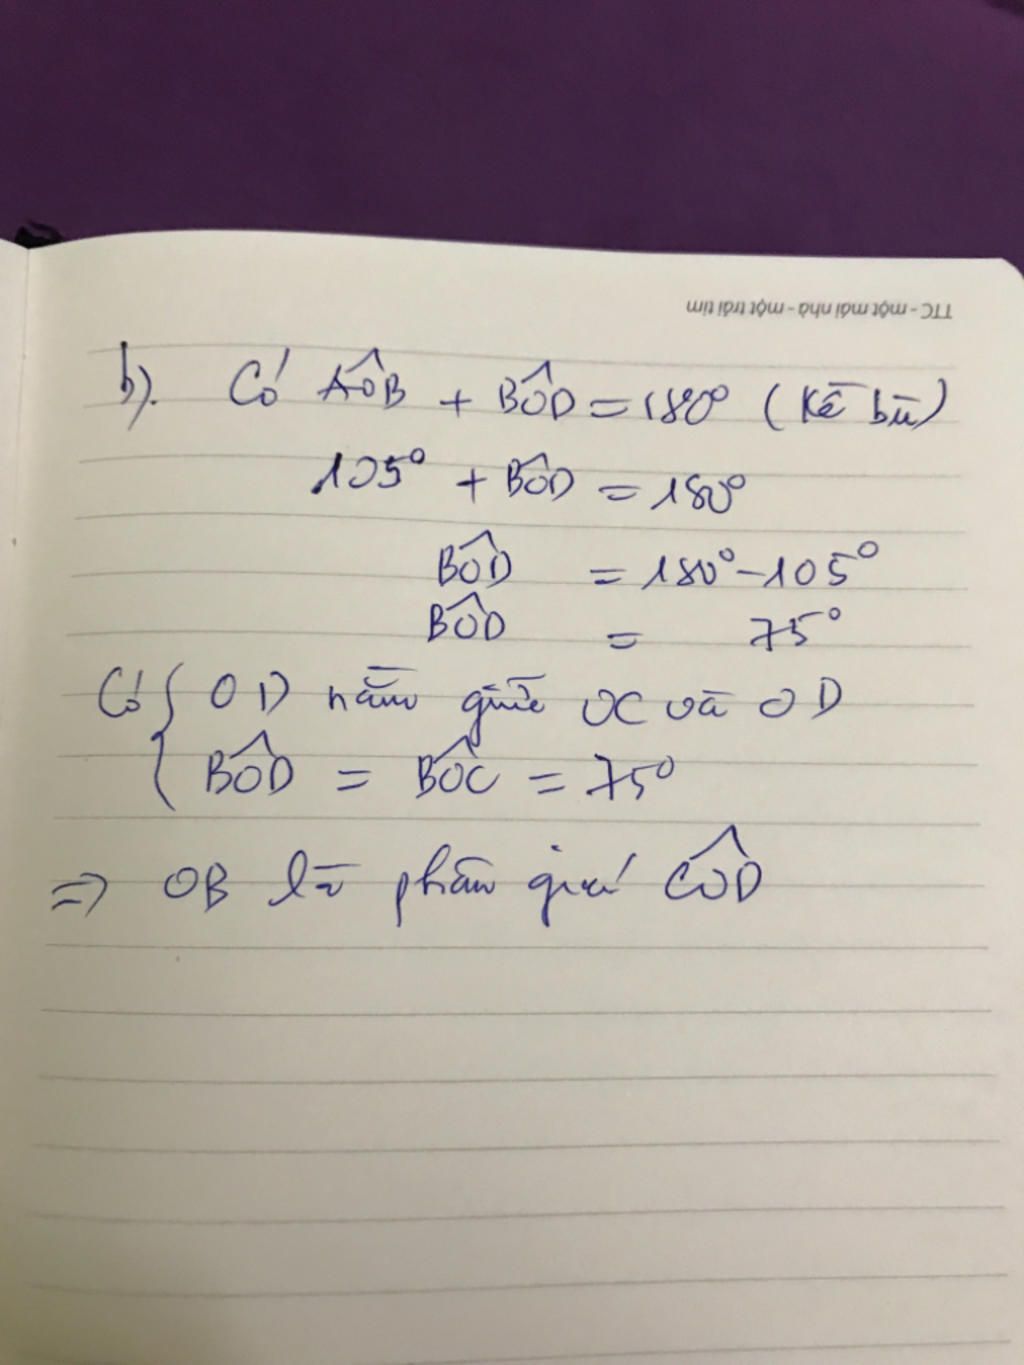 TTC - một mái nhà - một trái tim
b). Có AÔB + BÔD = 180° (Kề bù)
105° + BÔD = 180°
BÔD = 180° - 105°
BÔD = 75°
Có { OD nằm giữa OC và OD
BÔD = BÔC = 75°
=> OB là phân giác CÔD